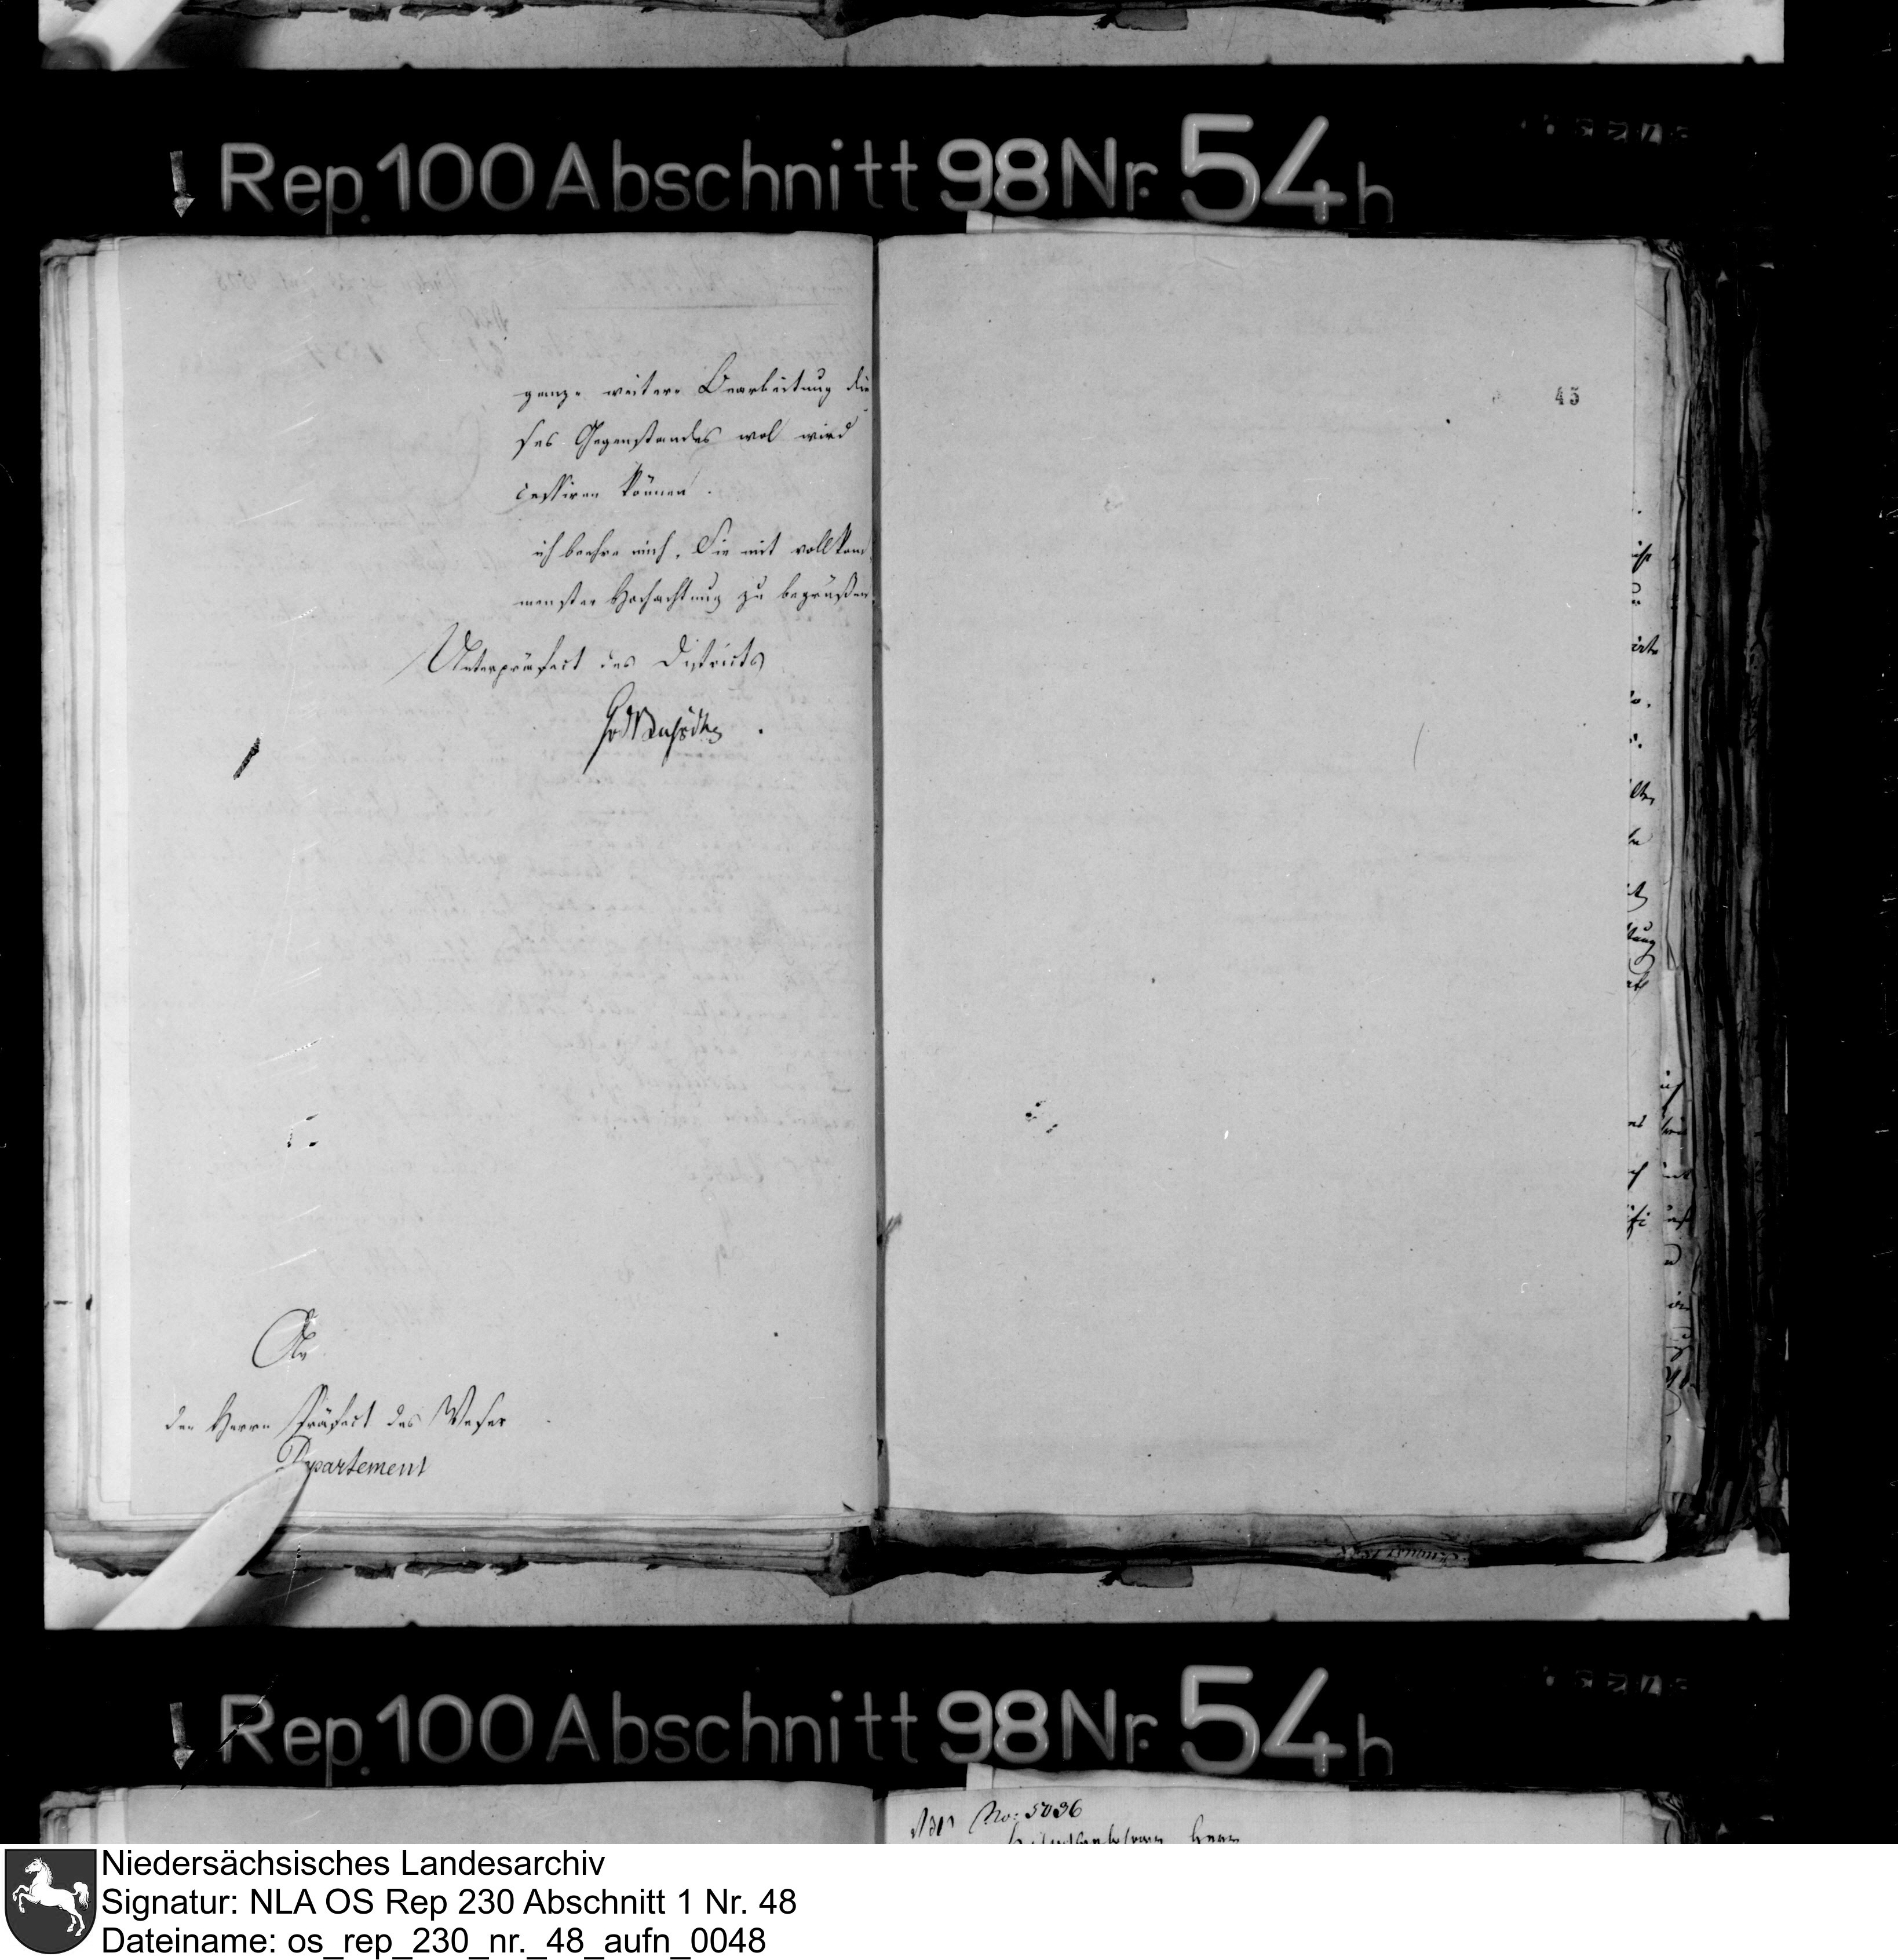 Rep. 100 Abschnitt 98 Nr. 54 h
ganze weitere Bearbeitung die
ses Gegenstandes wol wird
cessiren können.
ich beehre mich, Sie mit vollkom
menster Hochachtung zu begrüßen
Unterpräfect des Districts
An
den Herrn Präfect des Weser
Departement
45
Rep. 100 Abschnitt 98 Nr. 54 h
No: 5036
Niedersächsisches Landesarchiv
Signatur: NLA OS Rep 230 Abschnitt 1 Nr. 48
Dateiname: os_rep_230_nr._48_aufn_0048